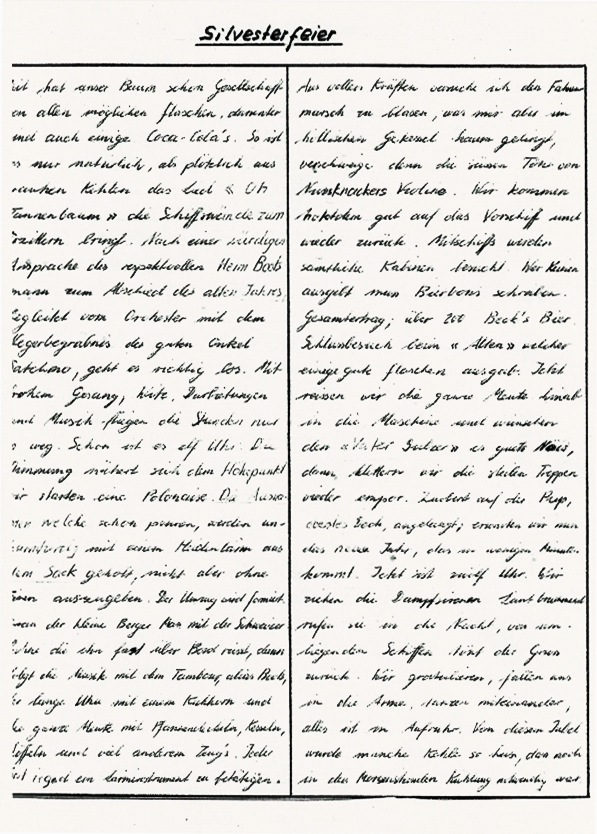 Silvesterfeier
hat unser Baum schon Gesellschaft
allen möglichen flaschen, darunter
auch einige Coca-Cola's. So ist
nur natürlich, als plötzlich aus
rauhen Kehlen das Lied « Oh
Tannenbaum » die Schiffswände zum
erzittern bringt. Nach einer würdigen
Ansprache des respektvollen Herrn Boots
mann zum Abschied des alten Jahres,
begleitet vom Orchester mit dem
Negerbegräbnis des guten Onkel
Satchmo, geht es richtig los. Mit
frohem Gesang, Darbietungen
und Musik fliegen die Stunden nur
so weg. Schon ist es elf Uhr. Die
Stimmung nähert sich dem Höhepunkt
wir starten eine Polonaise. Die
welche schon pennen, werden un-
mit einem Heidenlärm aus
dem Sack geholt, nicht aber ohne
auszugeben. Der Umzug wird formiert.
der kleine Berger Max mit der Schweizer
Fahne die ihn fast über Bord reisst, dann
folgt die Musik mit dem Tambour, alias Boots,
der lange Uhu mit einem Kuhhorn und
die ganze Meute mit Pfannendeckeln, Kesseln,
Löffeln und viel anderem Zeug's. Jeder
hat irgend ein Lärminstrument zu betätigen.
Aus vollen Kräften versuche ich den Fahnen
marsch zu blasen, was mir aber im
höllischen Gekessel kaum gelingt,
verschweige denn die süssen Töne von
Nussknackers Violine. Wir kommen
trotzdem gut auf das Vorschiff und
wieder zurück. Mitschiffs werden
sämtliche Kabinen besucht. Wer keinen
ausgibt muss Bierbons schreiben.
Gesamtertrag; über 200 Beck's Bier.
Schlussbesuch beim « Alten » welcher
einige gute flaschen ausgab. Jetzt
reissen wir die ganze Meute hinab
in die Maschine und wünschen
den es guets Nöis,
dann klettern wir die steilen Treppen
wieder empor. Zuoberst auf der Pup,
oberstes Deck, angelangt; erwarten wir nun
das neue Jahr, das in wenigen Minuten
kommt. Jetzt ist zwölf Uhr. Wir
ziehen die Dampfsirenen
rufen sie in die Nacht, von um-
liegenden Schiffen tönt der Gruss
zurück. Wir gratulieren, fallen uns
in die Arme, tanzen miteinander,
alles ist in Aufruhr. Von diesem Jubel
wurde manche Kehle so heiss, dass noch
in den Morgenstunden Kühlung notwendig war.